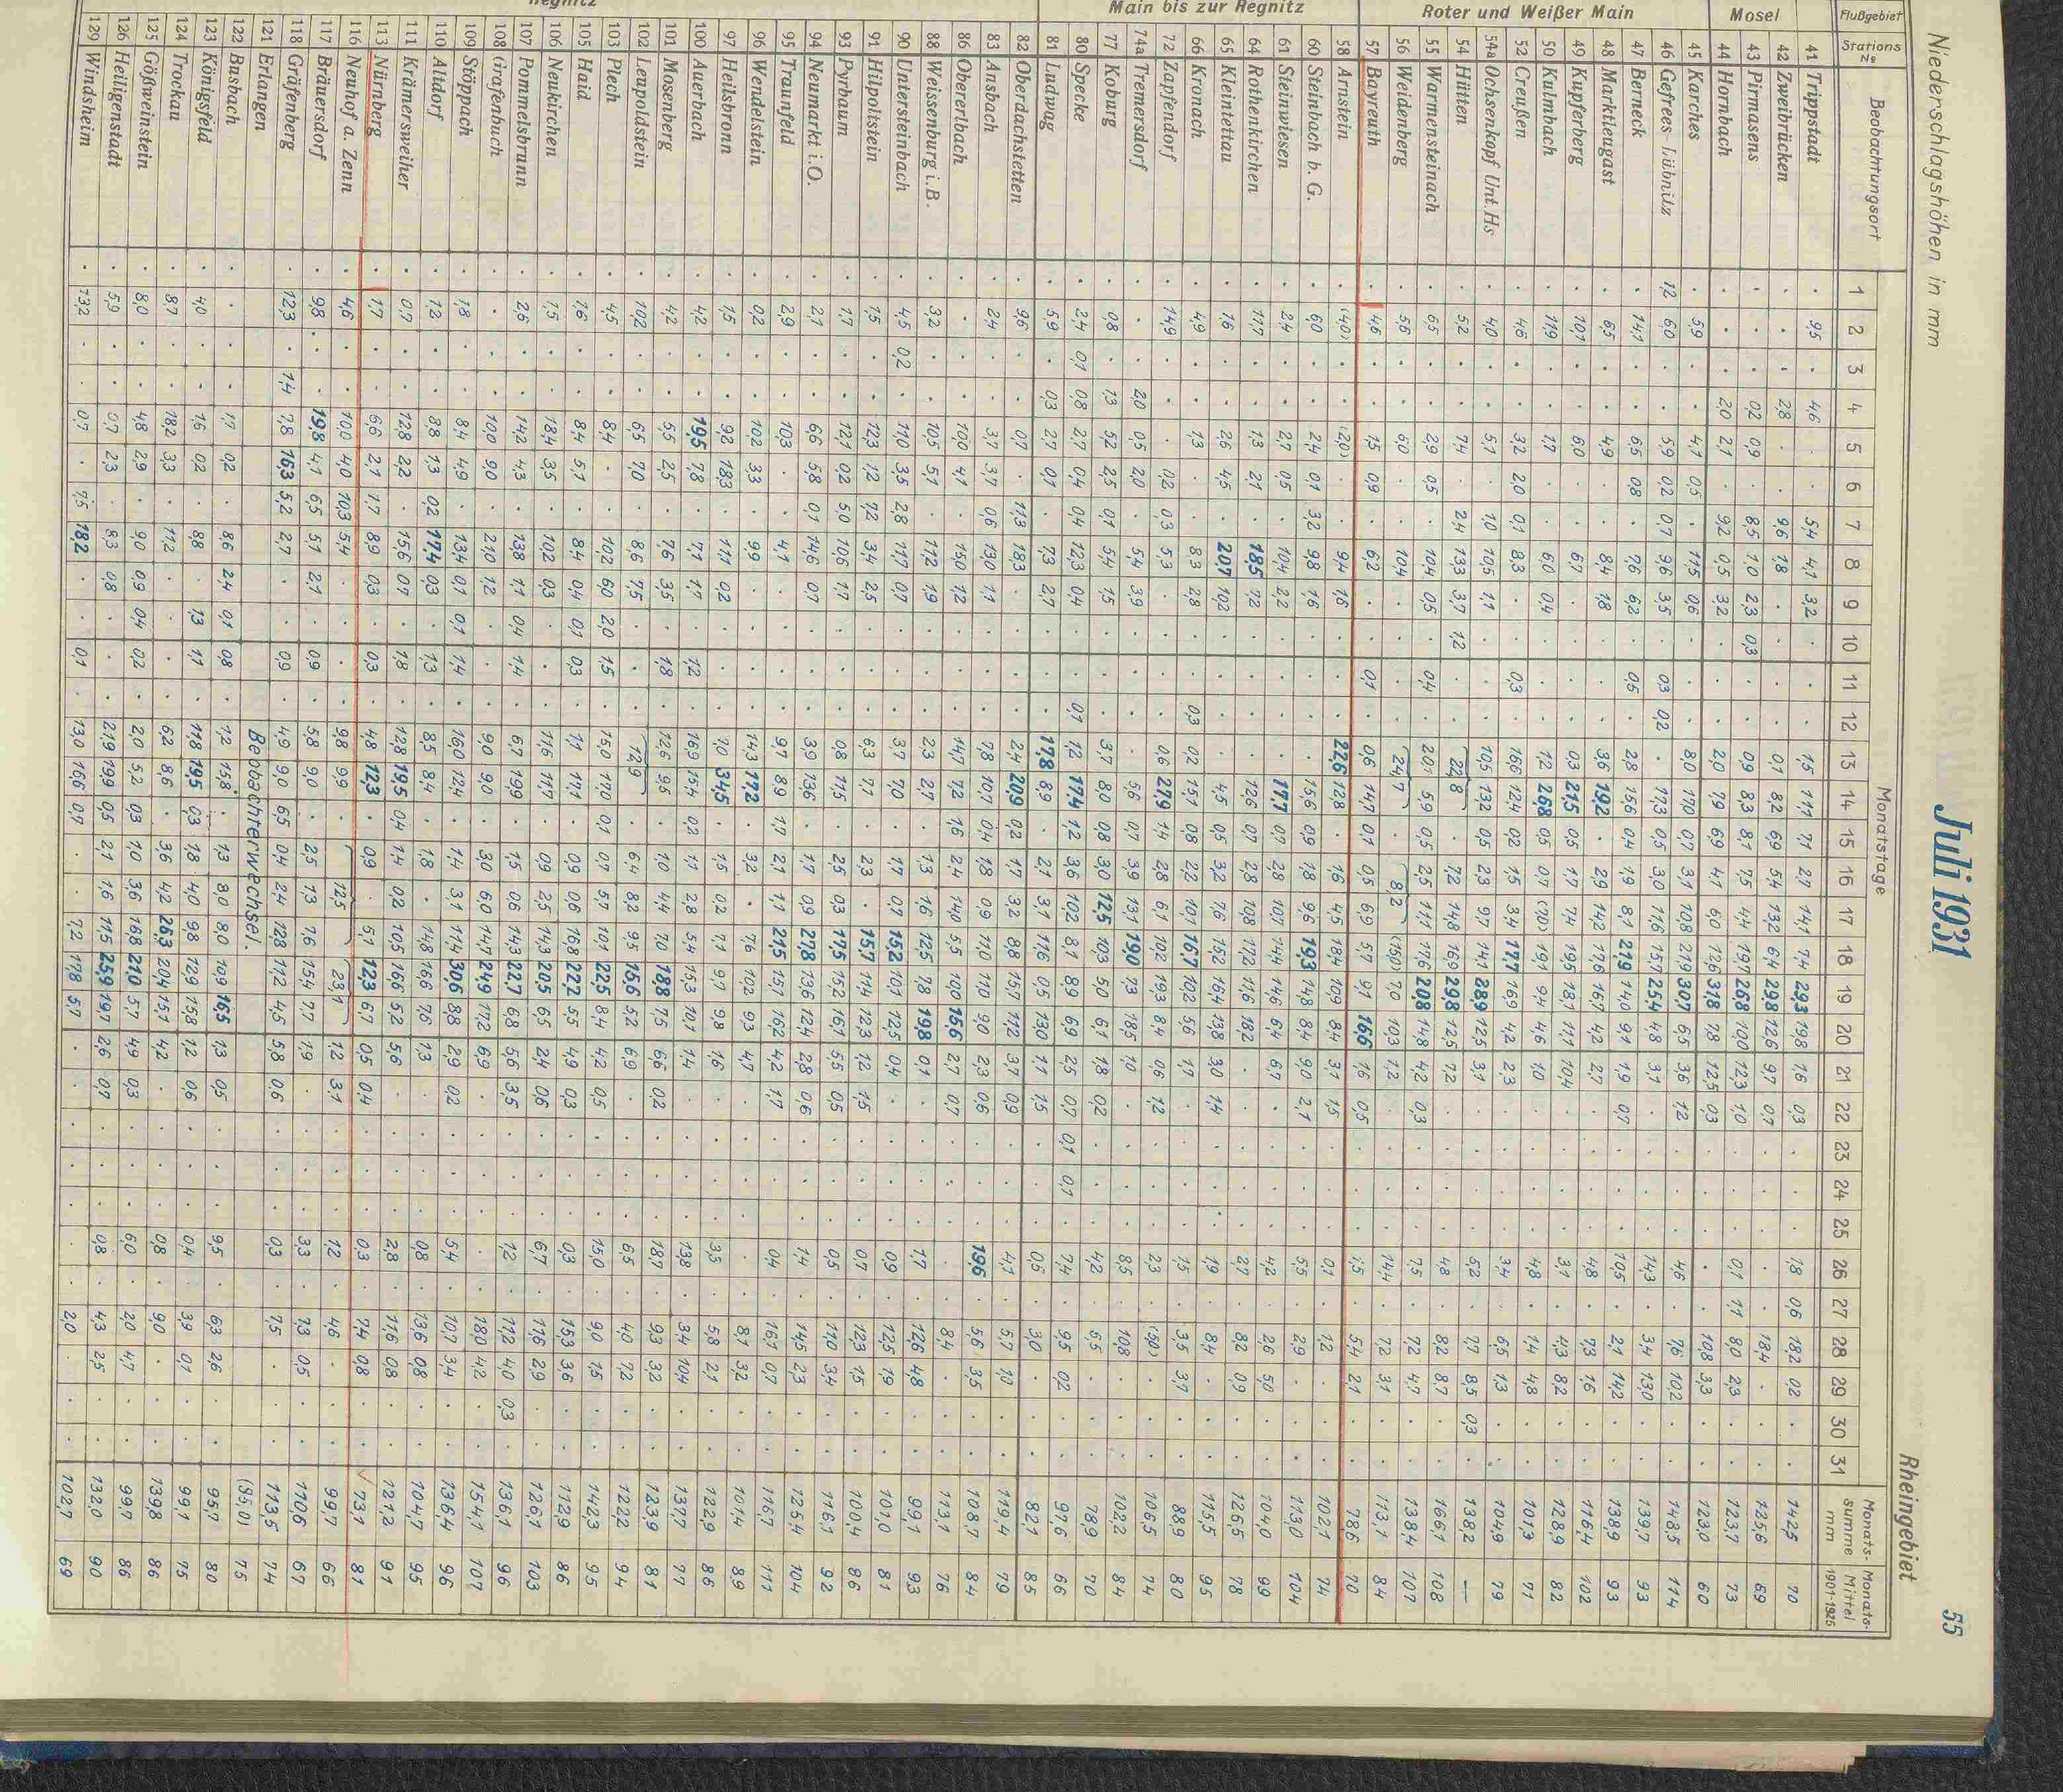 Niederschlagshöhen in mm Juli 1931 Rheingebiet 55
Flußgebiet Stations № Beobachtungsort Monatstage Monats-summe mm Monats-Mittel 1901-1925
1 2 3 4 5 6 7 8 9 10 11 12 13 14 15 16 17 18 19 20 21 22 23 24 25 26 27 28 29 30 31
41 Trippstadt 9,5 4,6 5,4 4,1 3,2 1,5 11,1 7,1 2,7 14,1 7,4 29,3 13,8 1,6 0,3 1,8 0,6 18,2 0,2 142,5 70
Mosel
42 Zweibrücken 2,8 9,6 1,8 0,1 8,2 6,9 5,4 13,2 6,4 29,8 12,6 9,7 0,7 18,4 125,6 69
43 Pirmasens 0,2 0,9 8,5 1,0 2,3 0,3 0,9 8,3 8,1 7,5 4,4 19,7 26,8 10,0 12,3 1,0 0,1 1,1 8,0 2,3 123,7 73
44 Hornbach 2,0 2,1 9,2 0,5 3,2 2,0 7,9 6,9 4,1 6,0 12,6 31,8 7,8 12,5 0,3 10,8 3,3 123,0 60
45 Karches 5,9 4,1 0,5 11,5 0,6 8,0 17,0 0,7 3,1 10,8 21,9 30,7 6,5 3,6 1,2 4,6 7,6 10,2 148,5 114
Roter und Weißer Main
46 Gefrees Lübnitz 1,2 6,0 5,9 0,2 0,7 9,6 3,5 0,3 0,2 17,3 0,5 3,0 11,6 15,7 25,4 4,8 3,1 14,3 3,4 13,0 139,7 93
47 Berneck 14,1 6,5 0,8 7,6 6,2 0,5 2,8 15,6 0,4 1,9 8,1 21,9 14,0 9,1 1,9 0,7 10,5 2,1 14,2 138,9 93
48 Marktleugast 6,5 4,9 8,4 1,8 3,6 19,2 2,9 14,2 17,6 16,7 4,2 2,7 4,8 7,3 1,6 116,4 102
49 Kupferberg 10,1 6,0 6,7 0,3 21,5 0,5 1,7 7,4 19,5 18,1 11,1 10,4 3,1 4,3 8,2 128,9 82
50 Kulmbach 11,9 1,7 6,0 0,4 1,2 26,8 0,5 0,7 (7,0) 19,1 9,4 4,6 1,0 4,8 1,4 4,8 101,3 71
52 Creußen 4,6 3,2 2,0 0,1 8,3 0,3 16,6 12,4 0,2 1,5 3,4 17,7 16,9 4,2 2,3 3,4 6,5 1,3 104,9 79
54a Ochsenkopf Unt.Hs 4,0 5,1 1,0 10,5 1,1 10,5 13,2 0,5 2,3 9,7 14,1 28,9 12,5 3,1 5,2 7,7 8,5 0,3 138,2 —
54 Hütten 5,2 7,4 2,4 13,3 3,7 1,2 22,8 7,2 14,8 16,9 29,8 12,5 7,2 4,8 8,2 8,7 166,1 108
55 Warmensteinach 6,5 2,9 0,5 10,4 0,5 0,4 20,1 5,9 0,5 2,5 11,1 17,6 20,8 14,8 4,2 0,3 7,5 7,2 4,7 138,4 107
56 Weidenberg 5,6 6,0 10,4 24,7 8,2 (15,0) 7,0 10,3 1,2 14,4 7,2 3,1 113,1 84
57 Bayreuth 4,6 1,5 0,9 6,2 0,1 0,6 14,7 0,1 0,5 6,9 5,7 9,1 16,6 1,6 0,5 1,5 5,4 2,1 78,6 70
Main bis zur Regnitz
58 Arnstein (4,0) (2,0) 9,4 1,6 22,6 12,8 1,6 4,5 18,4 10,9 8,4 3,1 1,5 0,1 1,2 102,1 74
60 Steinbach b. G. 6,0 2,4 0,1 3,2 9,8 1,6 15,6 0,9 1,8 9,6 19,3 14,8 8,4 9,0 2,1 5,5 2,9 113,0 104
61 Steinwiesen 2,4 2,7 0,5 10,4 2,2 17,7 0,7 2,8 10,7 14,4 14,6 6,4 6,7 4,2 2,6 5,0 104,0 99
64 Rothenkirchen 11,7 1,3 2,1 18,5 7,2 12,6 0,7 2,8 10,8 17,2 11,6 18,2 2,7 8,2 0,9 126,5 78
65 Kleintettau 1,6 2,6 4,5 20,7 10,2 4,5 0,5 3,2 7,6 15,2 16,4 13,8 3,0 1,4 1,9 8,4 115,5 95
66 Kronach 4,9 1,3 8,3 2,8 0,3 0,2 15,1 0,8 2,2 10,1 16,7 10,2 5,6 1,7 1,5 3,5 3,7 88,9 80
72 Zapfendorf 14,9 0,2 0,3 5,3 0,6 27,9 1,4 2,8 6,1 10,2 19,3 8,4 0,6 1,2 2,3 (5,0) 106,5 74
74a Tremersdorf 2,0 0,5 2,0 5,4 3,9 5,6 0,7 3,9 13,1 19,0 7,3 18,5 1,0 8,5 10,8 102,2 84
77 Koburg 0,8 1,3 5,2 2,5 0,1 5,4 1,5 3,7 8,0 0,8 3,0 12,5 10,3 5,0 6,1 1,8 0,2 4,2 6,5 78,9 70
80 Specke 2,4 0,1 0,8 2,7 0,4 0,4 12,3 0,4 0,1 1,2 17,4 1,2 3,6 10,2 8,1 8,9 6,9 2,5 0,7 0,1 0,1 7,4 9,5 0,2 97,6 66
81 Ludwag 5,9 0,3 2,7 0,1 7,3 2,7 17,8 8,9 2,1 3,1 11,6 0,5 13,0 1,1 1,5 0,5 3,0 82,1 85
Regnitz
82 Oberdachstetten 9,6 0,7 11,3 18,3 2,4 20,9 0,2 1,7 3,2 8,8 15,7 11,2 3,7 0,9 4,1 5,7 1,0 119,4 79
83 Ansbach 2,4 3,7 3,7 0,6 13,0 1,1 7,8 10,7 0,4 1,8 0,9 11,0 11,0 9,0 2,3 0,6 19,6 5,6 3,5 108,7 84
86 Obererlbach 10,0 4,1 15,0 1,2 14,7 7,2 1,6 2,4 14,0 5,5 10,0 15,6 2,7 0,7 8,4 113,1 76
88 Weissenburg i.B. 3,2 10,5 5,1 11,2 1,9 2,3 2,7 1,3 1,6 12,5 7,8 19,8 0,1 1,7 12,6 4,8 99,1 93
90 Untersteinbach 4,5 0,2 11,0 3,5 2,8 11,7 0,7 3,7 7,0 1,7 0,7 15,2 10,1 12,5 0,4 0,9 12,5 1,9 101,0 81
91 Hilpoltstein 1,5 12,3 1,2 7,2 3,4 2,5 6,3 7,7 2,3 15,7 11,4 12,3 1,2 1,5 0,7 12,3 1,5 100,4 86
93 Pyrbaum 1,7 12,1 0,2 5,0 10,6 1,7 0,8 11,5 2,5 0,3 17,5 15,2 16,1 5,5 0,5 0,5 11,0 3,4 116,1 92
94 Neumarkt i.O. 2,1 6,6 5,8 0,1 14,6 0,7 3,9 13,6 1,7 0,9 27,8 13,6 12,4 2,8 0,6 1,4 14,5 2,3 125,4 104
95 Traunfeld 2,9 10,3 4,1 9,7 8,9 1,7 2,1 1,1 21,5 15,1 16,2 4,2 1,7 0,4 16,1 0,7 116,7 111
96 Wendelstein 0,2 10,2 3,3 9,9 14,3 17,2 3,2 7,6 10,2 9,3 4,7 8,1 3,2 101,4 89
97 Heilsbronn 1,5 9,2 18,3 11,1 0,2 7,0 34,5 1,5 0,2 7,1 9,7 9,8 1,6 3,3 5,8 2,1 122,9 86
100 Auerbach 4,2 19,5 7,8 7,1 1,7 1,2 16,9 15,4 0,2 1,1 2,8 5,4 15,3 10,1 1,4 13,8 3,4 10,4 137,7 77
101 Mosenberg 4,2 5,5 2,5 7,6 3,5 1,8 12,6 9,5 1,0 4,4 7,0 18,8 7,5 6,6 0,2 18,7 9,3 3,2 123,9 81
102 Leupoldstein 10,2 6,5 7,0 8,6 7,5 12,9 6,4 8,2 9,5 15,6 5,2 6,9 6,5 4,0 7,2 122,2 94
103 Plech 4,5 8,4 10,2 6,0 2,0 1,5 15,0 17,0 0,1 0,7 5,7 10,1 22,5 8,4 4,2 0,5 15,0 9,0 1,5 142,3 95
105 Haid 1,6 8,4 5,1 8,4 0,4 0,1 0,3 1,1 17,1 0,9 0,6 16,8 22,2 5,5 4,9 0,3 0,3 15,3 3,6 112,9 86
106 Neukirchen 1,5 18,4 3,5 10,2 0,3 11,6 11,7 0,9 2,5 14,3 20,5 6,5 2,4 0,6 6,7 11,6 2,9 126,1 103
107 Pommelsbrunn 2,6 14,2 4,3 13,8 1,1 0,4 1,4 6,7 19,9 1,5 0,6 14,3 22,7 6,8 5,6 3,5 1,2 11,2 4,0 0,3 136,1 96
108 Grafenbuch 10,0 9,0 21,0 1,2 9,0 9,0 3,0 6,0 14,7 24,9 17,2 6,9 18,0 4,2 154,1 107
109 Stöppach 1,8 8,4 4,9 13,4 0,1 0,1 1,4 16,0 12,4 1,4 3,1 11,4 30,6 8,8 2,9 0,2 5,4 10,7 3,4 136,4 96
110 Altdorf 1,2 8,8 1,3 0,2 17,4 0,3 1,3 8,5 8,4 1,8 11,8 16,6 7,6 1,3 0,8 13,6 0,8 104,7 95
111 Krämersweiher 0,7 12,8 2,2 15,6 0,7 1,8 12,8 19,5 0,4 1,4 0,2 10,5 16,6 5,2 5,6 2,8 11,6 0,8 121,2 91
113 Nürnberg 1,7 6,6 2,1 1,7 8,9 0,3 0,3 4,8 12,3 0,9 5,1 12,3 6,7 0,5 0,4 0,3 7,4 0,8 73,1 81
116 Neuhof a. Zenn 4,6 10,0 4,0 10,3 5,4 9,8 9,9 12,5 23,1 1,2 3,1 1,2 4,6 99,7 66
117 Bräuersdorf 9,8 19,8 4,1 6,5 5,1 2,1 0,9 5,8 9,0 2,5 1,3 7,6 15,4 7,7 1,9 3,3 7,3 0,5 110,6 67
118 Gräfenberg 12,3 1,4 7,8 16,3 5,2 2,7 0,9 4,9 9,0 6,5 0,4 2,4 12,8 11,2 4,5 5,8 0,6 0,3 7,5 113,5 74
121 Erlangen Beobachterwechsel. (85,0) 75
122 Busbach 1,7 0,2 8,6 2,4 0,1 0,8 1,2 15,8 1,3 8,0 8,0 10,9 16,5 1,3 0,5 9,5 6,3 2,6 95,7 80
123 Königsfeld 4,0 1,6 0,2 8,8 1,3 1,1 11,8 19,5 0,3 1,8 4,0 9,8 12,9 15,8 1,2 0,6 0,4 3,9 0,1 99,1 75
124 Trockau 8,7 18,2 3,3 11,2 6,2 8,6 3,6 4,2 26,3 20,4 15,1 4,2 0,8 9,0 139,8 86
125 Gößweinstein 8,0 4,8 2,9 9,0 0,9 0,4 0,2 2,0 5,2 0,3 1,0 3,6 16,8 21,0 5,7 4,9 0,3 6,0 2,0 4,7 99,7 86
126 Heiligenstadt 5,9 0,7 2,3 8,3 0,8 21,9 19,9 0,5 2,1 1,6 11,5 25,9 19,7 2,6 0,7 0,8 4,3 2,5 132,0 90
129 Windsheim 13,2 0,7 7,5 18,2 0,1 13,0 16,6 0,7 7,2 17,8 5,7 2,0 102,7 69